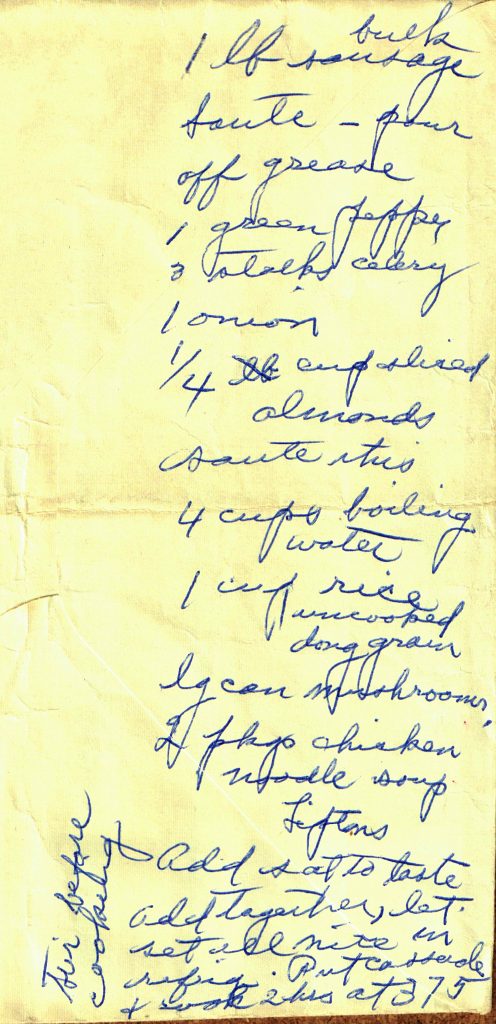 1 lb bulk sausage
Saute - pour
off grease
1 green pepper
3 stalks celery
1 onion
1/4 cup sliced
almonds
saute this
4 cups boiling
water
1 cup rice
uncooked
long grain
lg can mushrooms,
2 pkgs chicken
noodle soup
Liptons
Add salt to taste
add together, let
set all nite in
refrig. Put casserole
& cook 2 hrs at 375
Stir before
cooking